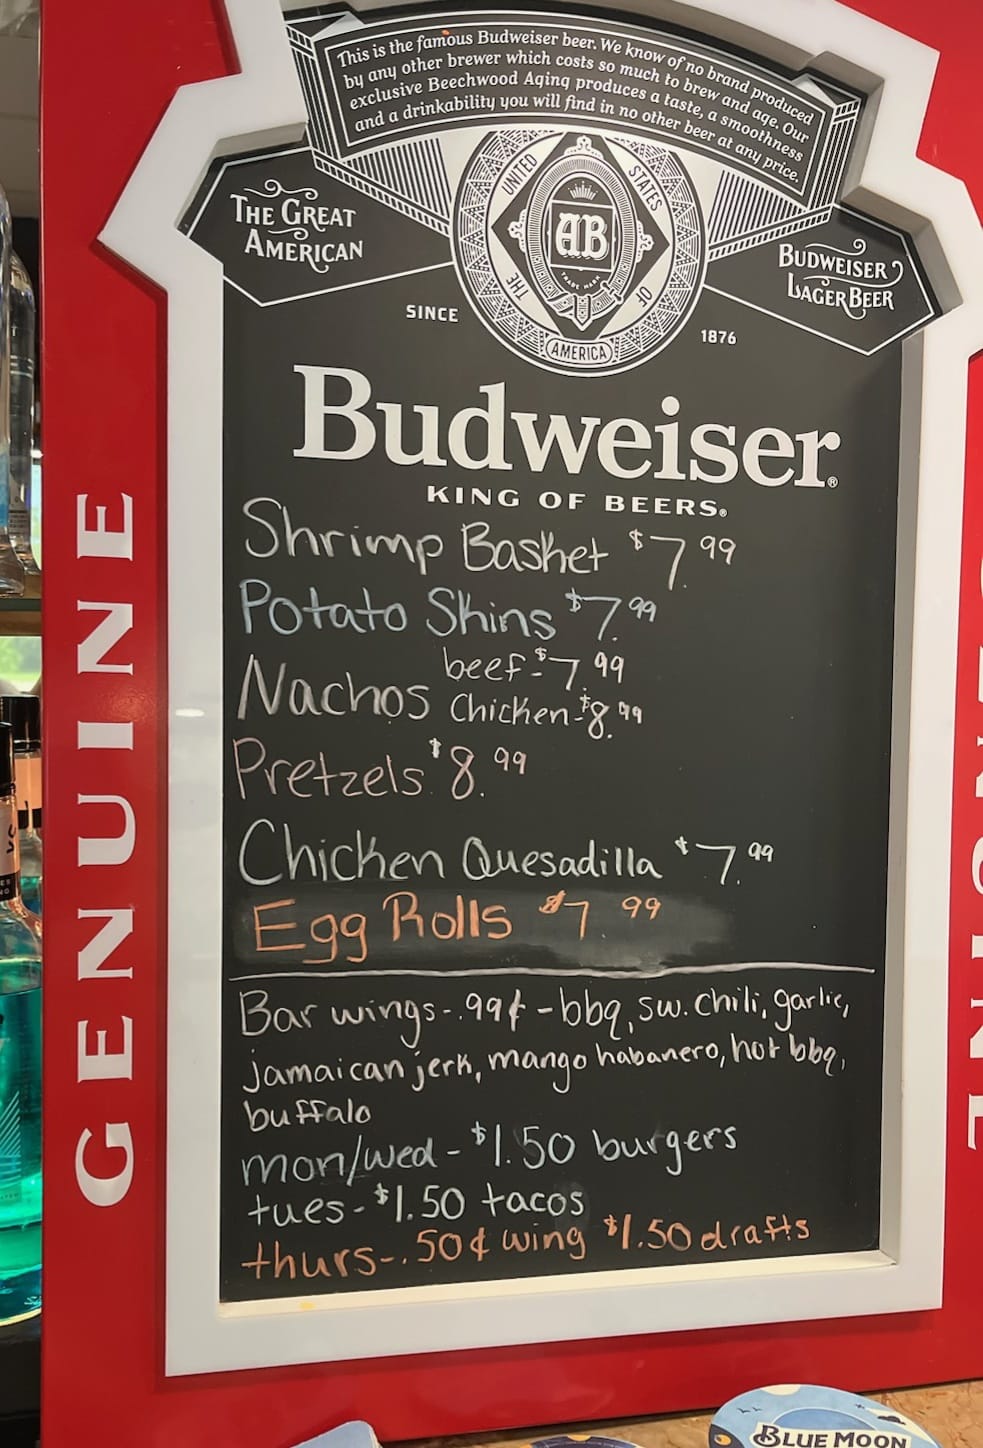 This is the famous Budweiser beer. We know of no brand produced
by any other brewer which costs so much to brew and age. Our
exclusive Beechwood Aging produces a taste, a smoothness
and a drinkability you will find in no other beer at any price.
THE GREAT
AMERICAN
UNITED
STATES
THE
OF
AMERICA
AB
TRADE MARK
BUDWEISER
LAGER BEER
SINCE
1876
Budweiser®
KING OF BEERS®
Shrimp Basket $7.99
Potato Skins $7.99
Nachos beef-$7.99
Chicken-$8.99
Pretzels $8.99
Chicken Quesadilla $7.99
Egg Rolls $7.99
Bar wings-.99¢-bbq, sw. chili, garlic,
jamaican jerk, mango habanero, hot bbq,
buffalo
mon/wed-$1.50 burgers
tues-$1.50 tacos
thurs-.50¢ wing $1.50 drafts
GENUINE
BLUE MOON